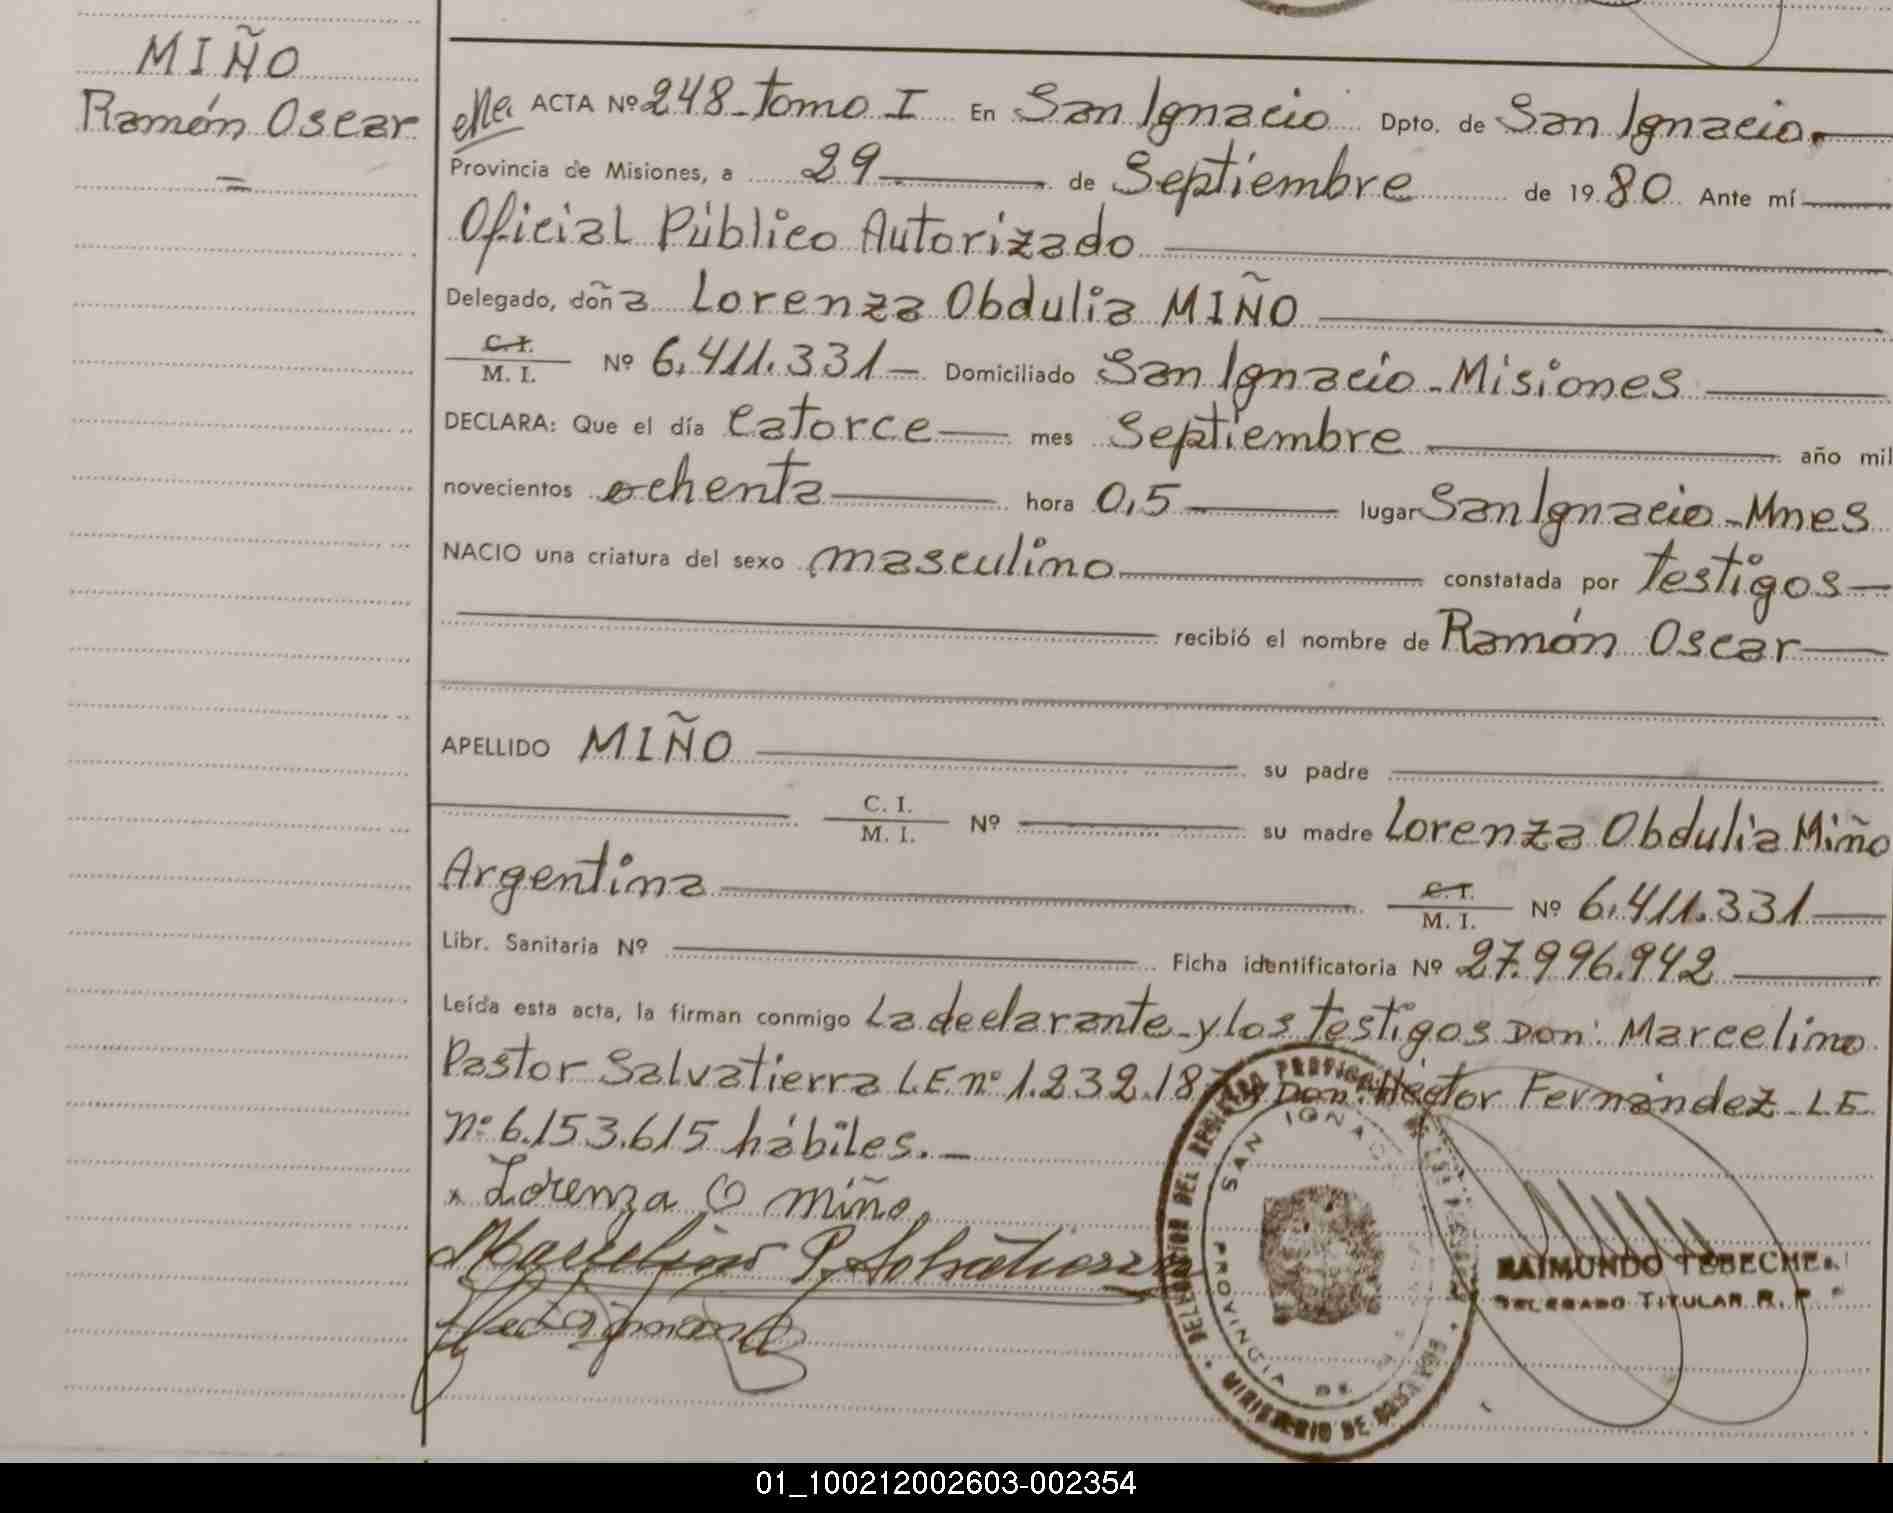 MIÑO
Ramón Oscar
=
ACTA Nº 248 - tomo I En San Ignacio Dpto. de San Ignacio.
Provincia de Misiones, a 29 de Septiembre de 1980 Ante mí
Oficial Público Autorizado
Delegado, doña Lorenza Obdulia MIÑO
C. I. / M. I. Nº 6.411.331 - Domiciliado San Ignacio - Misiones
DECLARA: Que el día catorce mes Septiembre año mil
novecientos ochenta hora 0,5 lugar San Ignacio - Mnes
NACIO una criatura del sexo masculino constatada por testigos
recibió el nombre de Ramón Oscar
APELLIDO MIÑO su padre
C. I. / M. I. Nº su madre Lorenza Obdulia Miño
Argentina C. I. / M. I. Nº 6.411.331
Libr. Sanitaria Nº Ficha identificatoria Nº 27.996.942
Leída esta acta, la firman conmigo La declarante y los testigos Don: Marcelino
Pastor Salvatierra L.E. nº 1.232.18 Don: Héctor Fernández - L E
nº 6.153.615 hábiles. -
Lorenza O Miño
Marcelino P. Salvatierra
DELEGACION DEL REGISTRO PROVINCIAL DE LAS PERSONAS
SAN IGNACIO
PROVINCIA DE
MINISTERIO DE GOBIERNO
RAIMUNDO TEBECHERI
DELEGADO TITULAR R. P.
01_100212002603-002354